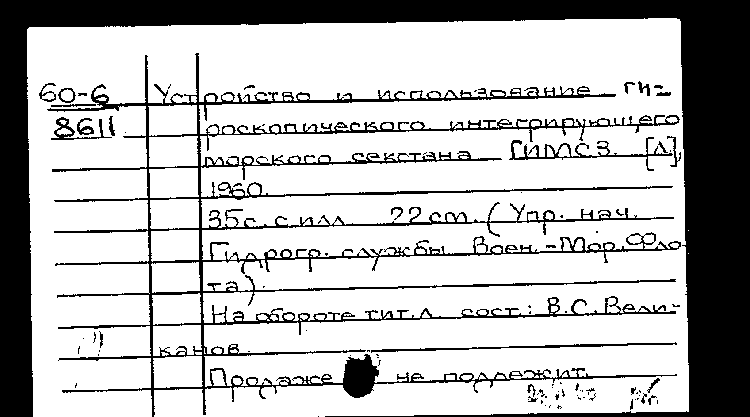 60-6 Устройство и использование ги=
8611 роскопического интегрирующего
морского секстана ГИМС3. [Л],
1960.
35 с. с илл. 22 cm. (Упр. нач.
Гидрогр. службы Воен.-Мор. Фло-
та).
На обороте тит. л. сост.: В.С. Вели-
канов.
Продаже не подлежит.